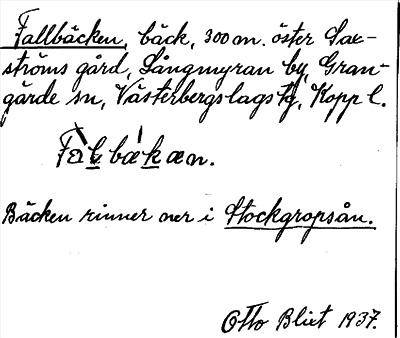 Fallbäcken, bäck, 300 m. öster Sax-
ströms gård, Långmyran by, Gran-
gärde sn, Västerbergslags tg, Kopp l.
Bäcken rinner ner i Stockgropsån.
Otto Blixt 1937.